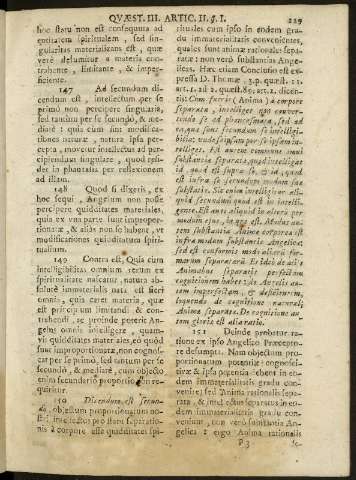 QVÆST. III. ARTIC. II. §. I. 229
hoc statu non est consequuta ad
entitatem spiritualem, sed sin-
gularitas materialitatis est, quæ
verè desumitur a materia con-
trahente, limitante, & impe-
ficiente.
147 Ad secundum di-
cendum est, intellectum per se
primò non percipere singularia,
sed tantùm per se secundò, & me-
diatè: quia cùm sint modifica-
tiones naturæ, natura ipsa per-
cepta, movetur intellectus ad per-
cipiendum singulare, quod resi-
det in phantasia per reflexionem
ad illam.
148 Quod si dixeris, ex
hoc sequi, Angelum non posse
percipere quidditates materiales,
quia ex una parte sunt impropor-
tionatæ, & aliàs non se habent, ut
modificationes quidditatum spiri-
tualium.
149 Contra est. Quia cùm
intelligibilitas omnium rerum ex
spiritualitate nascatur, natura ab-
solutè immaterialis nata est scire
omnia, quia caret materia, quæ
est præcipuum limitandi & con-
trahendi, ac proinde poterit An-
gelus omnia intelligere, quam-
vis quidditates materiales, eò quòd
sunt improportionatæ, non cognos-
cat per se primò, sed tantùm per se
secundò, & mediatè, cum objecto
enim secundario proportio non re-
quiritur.
150 Dicendum est secun-
dò, objectum proportionatum no-
stri intellectus pro statu separatio-
nis à corpore esse quidditates spi-
rituales cum ipso in eodem gra-
du immaterialitatis convenientes,
quales sunt animæ rationales sepa-
ratæ: non verò substantias Ange-
licas. Hæc etiam Conclusio est ex-
pressa D. Thomæ 1.p. quæst. 12.
art. 1. ad 2. quæst. 89. art. 2. dicen-
tis: Cùm fuerit (Anima) à corpore
separata, intelliget non conver-
tendo se ad phantasmata, sed ad
ea, quæ sunt secundùm se intelligi-
bilia; unde seipsam per se ipsam in-
telliget. Est autem commune omni
substantiæ separatæ, quòd intelligat
id, quod est supra se, & id, quod
est infra se secundùm modum suæ
substantiæ. Sic enim intelligitur ali-
quid secundùm quod est in intelli-
gente. Est autem aliquid in altero per
modum ejus, in quo est. Modus au-
tem substantiæ Animæ corporeæ est
infra modum substantiæ Angelicæ;
sed est conformis modo aliarum Ani-
marum separatarum. Et ideò de aliis
Animabus separatis perfectam
cognitionem habet; de Angelis au-
tem imperfectam, & deficientem,
loquendo de cognitione naturali
Animæ separatæ. De cognitione au-
tem gloriæ est alia ratio.
151 Deinde probatur ra-
tione ex ipso Angelico Præcepto-
re desumpta. Nam objectum pro-
portionatum potentiæ cognosci-
tivæ & ipsa potentia debent in eo-
dem immaterialitatis gradu con-
venire; sed Anima rationalis sepa-
rata, & intellectus separatus in eo-
dem immaterialitatis gradu con-
veniunt, non verò substantia An-
gelica: ergo Anima rationalis
P 3 se-